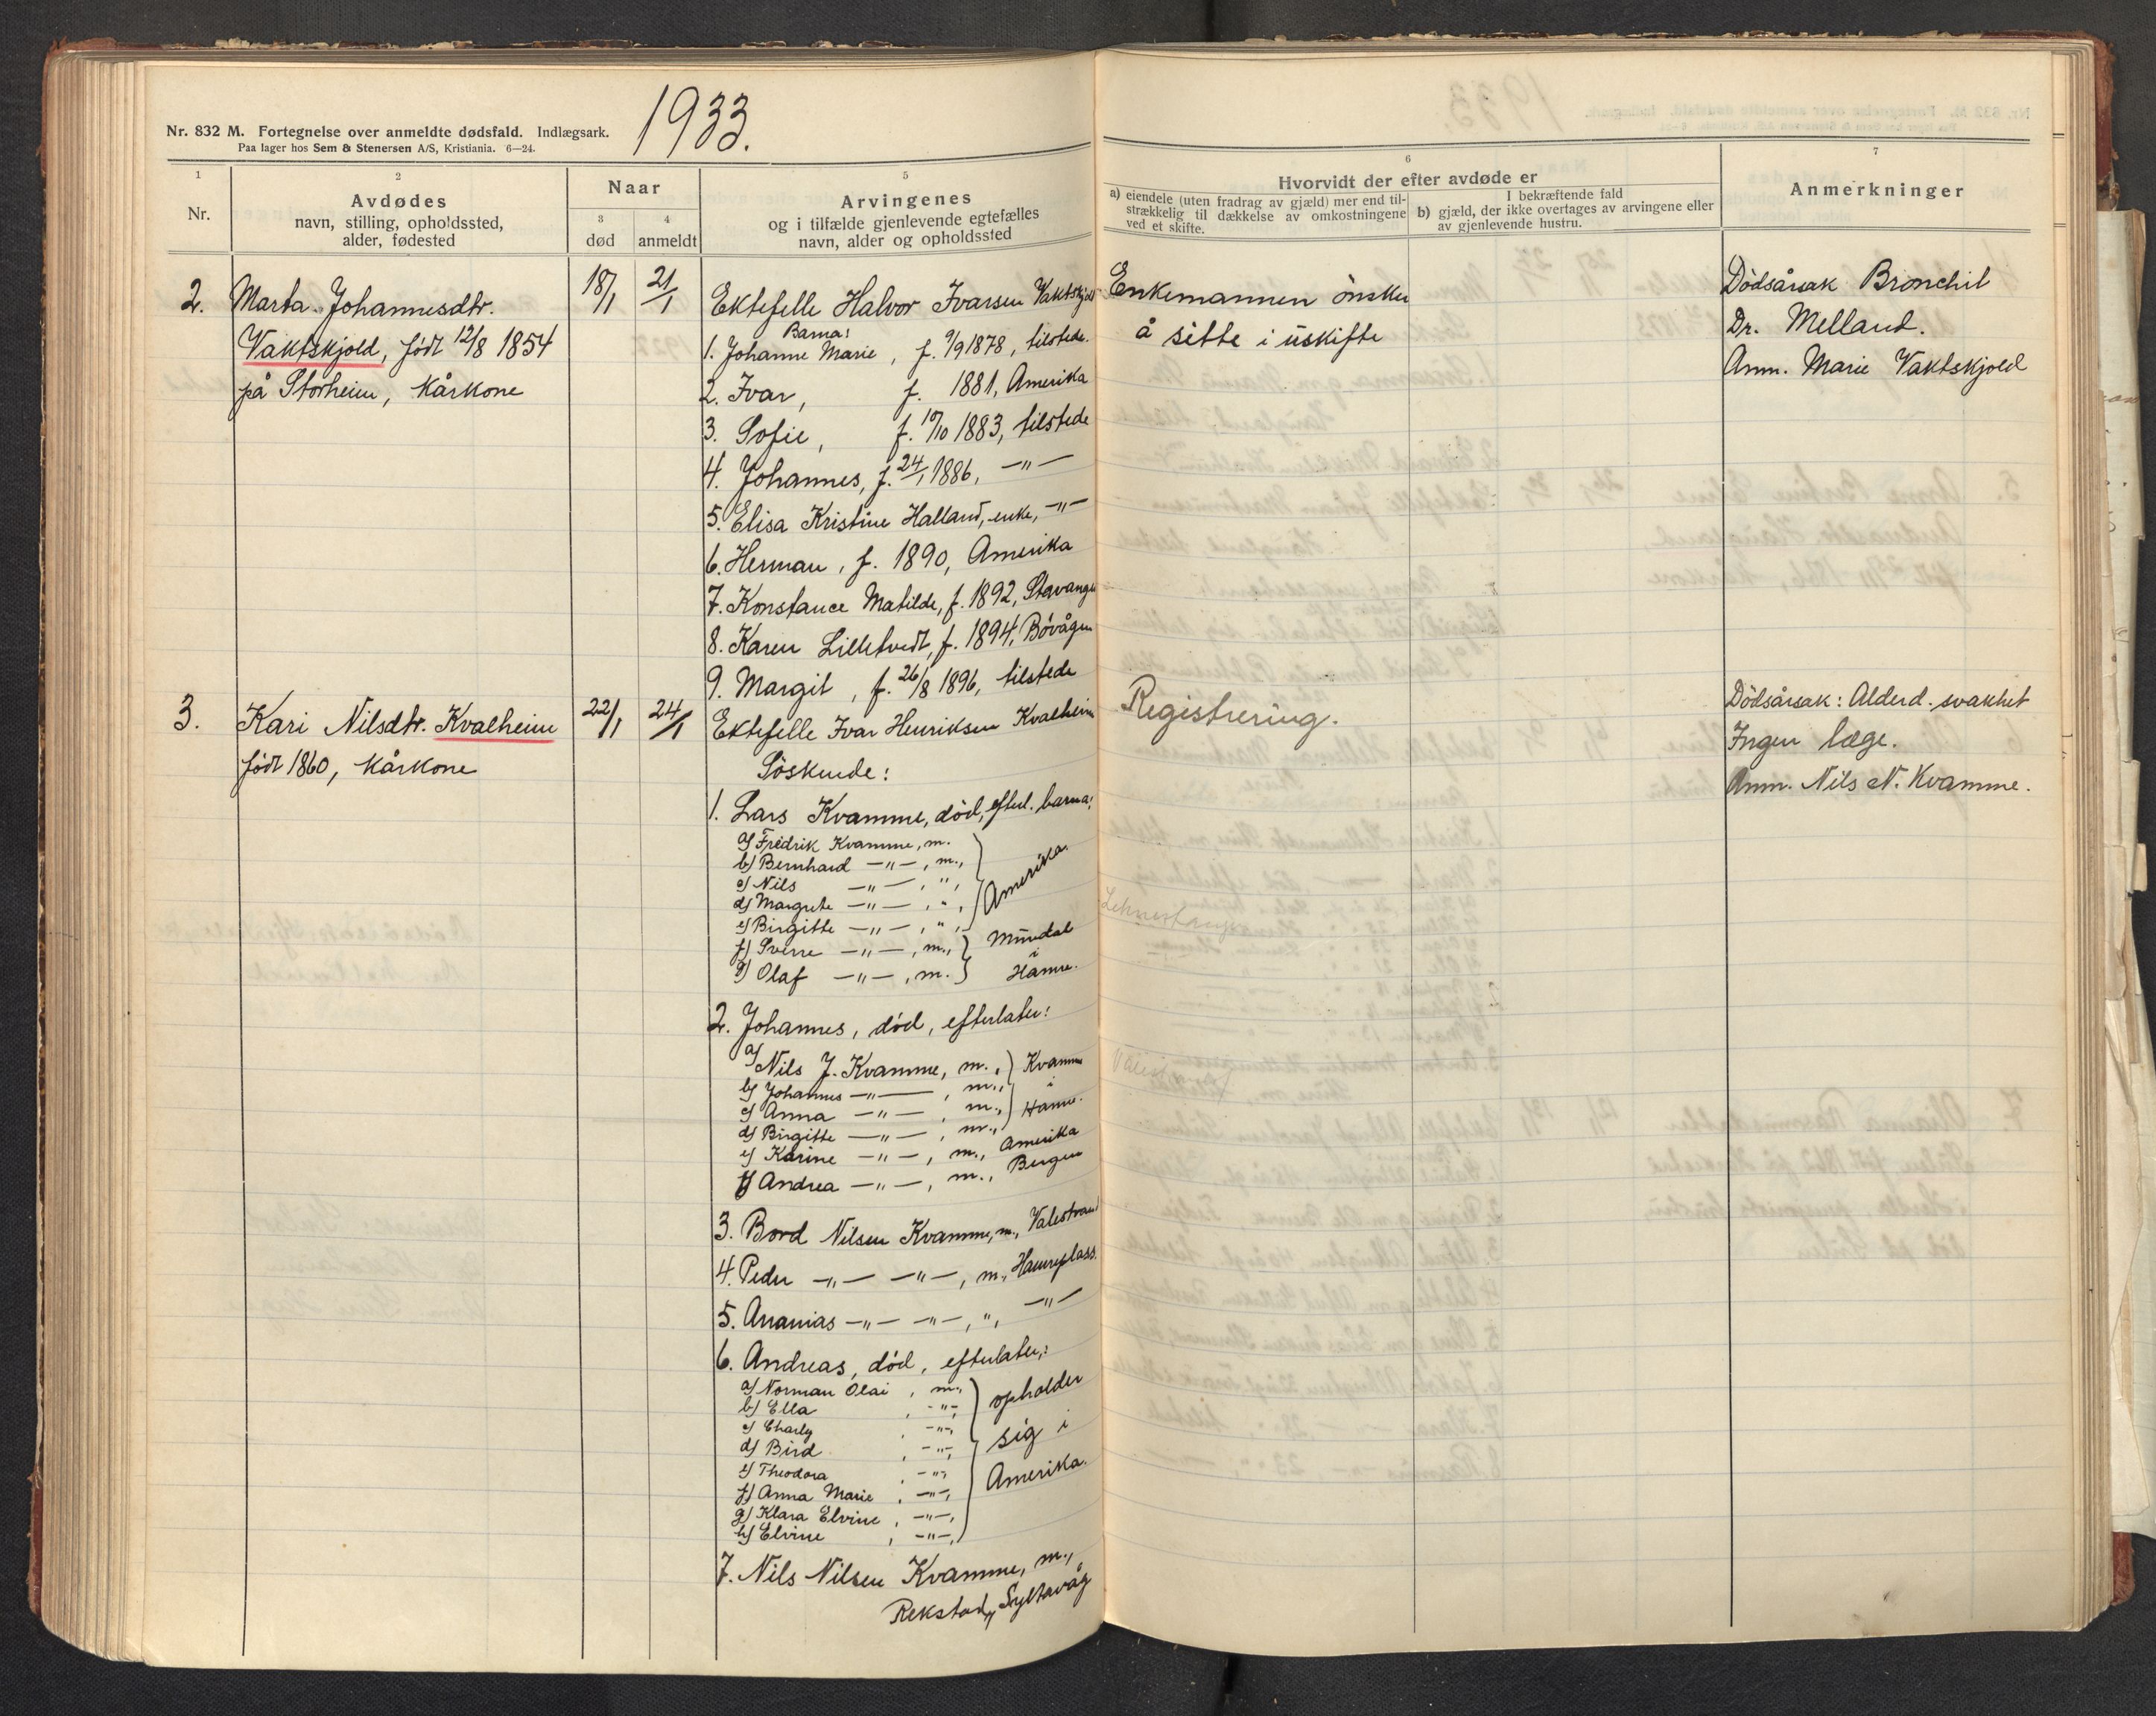 1933.
Nr. 832 M. Fortegnelse over anmeldte dødsfald. Indlægsark.
Paa lager hos Sem & Stenersen A/S, Kristiania. 6—24.
1
Nr.
2
Avdødes
navn, stilling, opholdssted,
alder, fødested
Naar
3
død
4
anmeldt
5
Arvingenes
og i tilfælde gjenlevende egtefælles
navn, alder og opholdssted
6
Hvorvidt der efter avdøde er
a) eiendele (uten fradrag av gjæld) mer end til-
strækkelig til dækkelse av omkostningene
ved et skifte.
I bekræftende fald
b) gjæld, der ikke overtages av arvingene eller
av gjenlevende hustru.
7
Anmerkninger
2.
Marta Johannesdtr.
Vaktskjold, født 12/8 1854
på Storheim, kårkone
18/1
21/1
Ektefelle Halvor Ivarsen Vaktskjold
Barna:
1. Johanne Marie, f. 9/9 1878, tilstede.
2. Ivar, f. 1881, Amerika
3. Sofie, f. 10/10 1883, tilstede
4. Johannes, f. 24/1 1886, —"—
5. Elisa Kristine Halland, enke, —"—
6. Herman, f. 1890, Amerika
7. Konstance Matilde, f. 1892, Stavanger
8. Karen Lilletvedt, f. 1894, Bövågen
9. Margit, f. 26/8 1896, tilstede
Enkemannen önsker
å sitte i uskifte
Dödsårsak Bronchit
Dr. Melland.
Anm. Marie Vaktskjold
3.
Kari Nilsdtr. Kvalheim
født 1860, kårkone
22/1
24/1
Ektefelle Ivar Henriksen Kvalheim
Söskende:
1. Lars Kvamme, död, efterl. barna:
a) Fredrik Kvamme, m.
b) Bernhard —"—, m.,
c) Nils —"—, ",
d) Margrete —"—, ",
e) Birgitte —"—, ",
Amerika.
f) Sverre —"—, m.,
g) Olaf —"—, m.
Mundal
i
Hamre.
2. Johannes, död, efterlater:
a) Nils J. Kvamme, m.,
b) Johannes —"—, m.,
c) Anna —"—, m.,
d) Birgitte —"—, m.,
Kvamme
i
Hamre.
e) Karine —"—, m., Amerika
f) Andrea —"—, m., Bergen
3. Bord Nilsen Kvamme, m., Valestrand
4. Peder —"— —"—, m., Hamreplass.
5. Ananias —"— —"—, ", —"—
6. Andreas, död, efterlater:
a) Norman Olai, m.,
b) Ella, —"—,
c) Charly, —"—,
d) Bird, —"—,
e) Theodora, —"—,
f) Anna Marie, —"—,
g) Klara Elvine, —"—,
h) Elvine, —"—,
opholder
sig i
Amerika.
7. Nils Nilsen Kvamme, m.,
Rekstad, Syltavåg
Registrering.
Dödsårsak: Alderd. svakhet
Ingen læge.
Anm. Nils N. Kvamme.